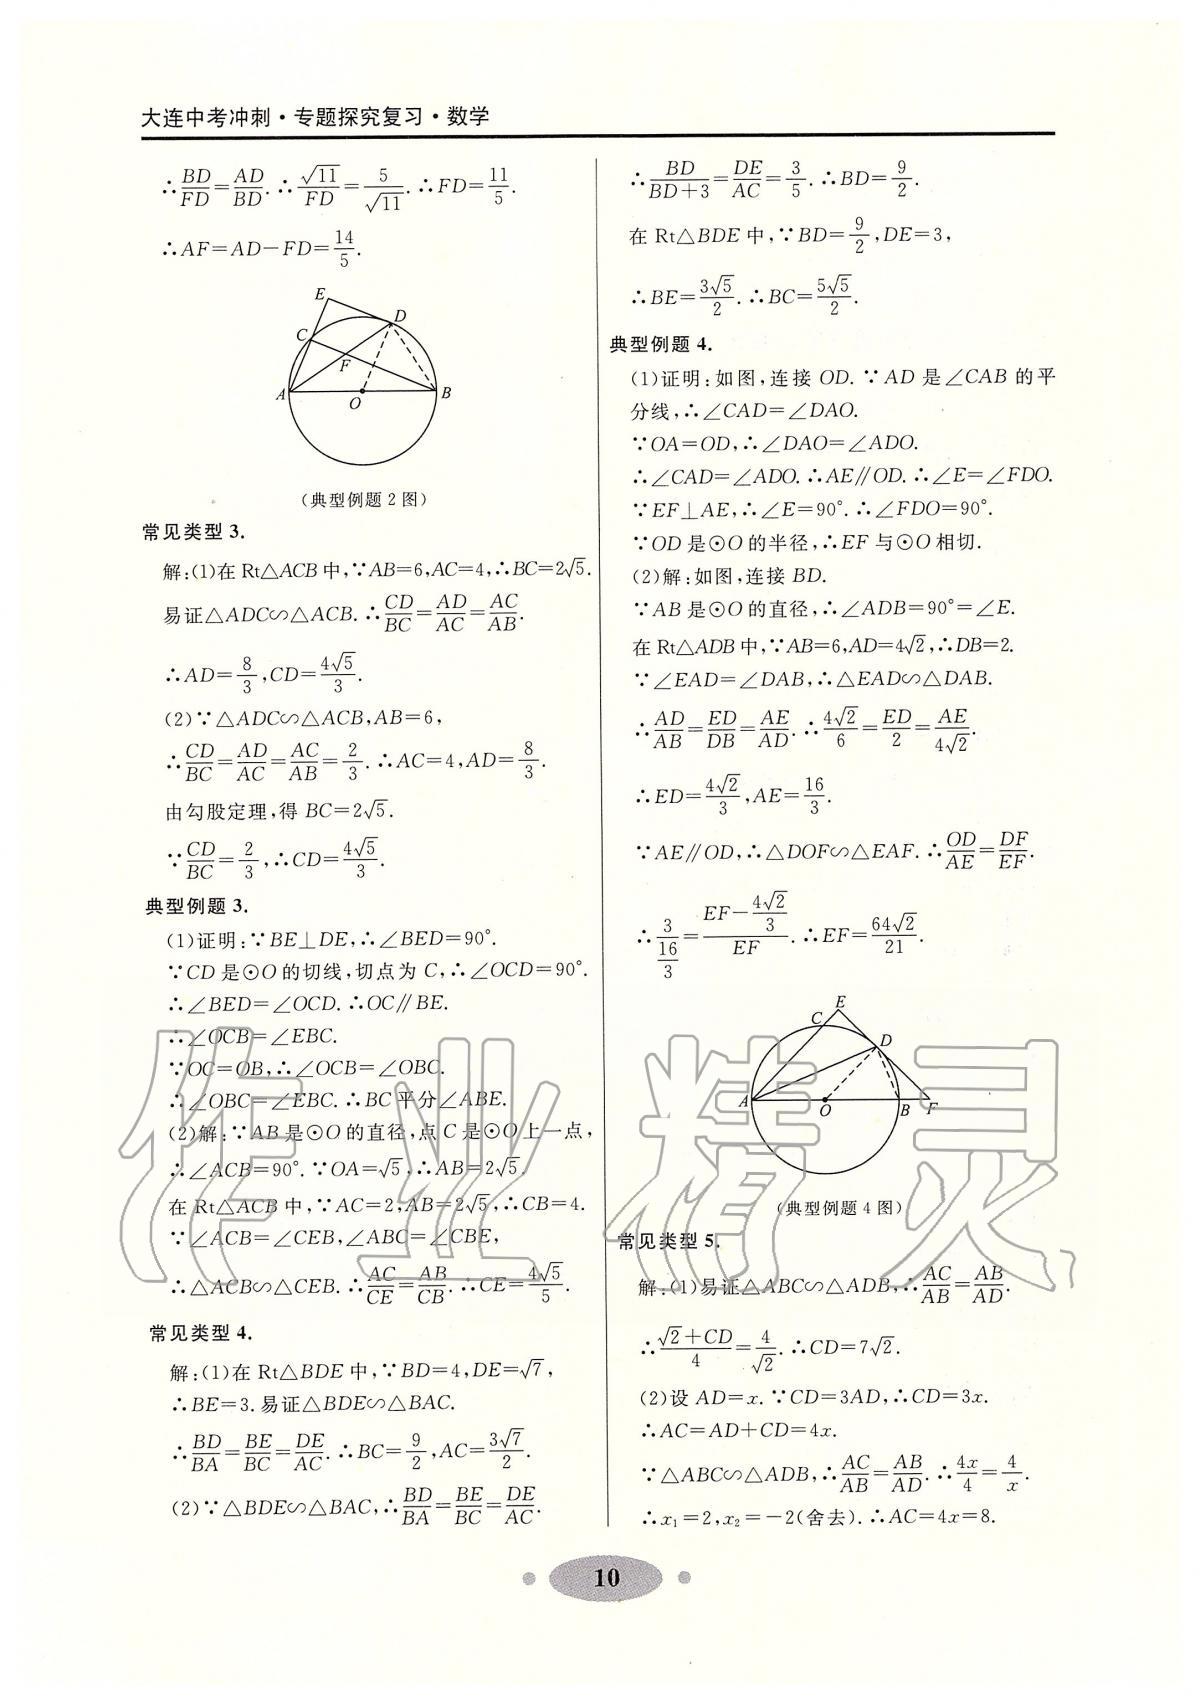 大连中考冲刺·专题探究复习·数学
∴BD/FD=AD/BD. ∴√11/FD=5/√11. ∴FD=11/5.
∴AF=AD－FD=14/5.
E
D
C
F
A
O
B
(典型例题2图)
常见类型3.
解:(1)在Rt△ACB中,∵AB=6,AC=4,∴BC=2√5.
易证△ADC∽△ACB. ∴CD/BC=AD/AC=AC/AB.
∴AD=8/3,CD=4√5/3.
(2)∵△ADC∽△ACB,AB=6,
∴CD/BC=AD/AC=AC/AB=2/3. ∴AC=4,AD=8/3.
由勾股定理,得BC=2√5.
∵CD/BC=2/3,∴CD=4√5/3.
典型例题3.
(1)证明:∵BE⊥DE,∴∠BED=90°.
∵CD是⊙O的切线,切点为C,∴∠OCD=90°.
∴∠BED=∠OCD. ∴OC∥BE.
∴∠OCB=∠EBC.
∵OC=OB,∴∠OCB=∠OBC.
∴∠OBC=∠EBC. ∴BC平分∠ABE.
(2)解:∵AB是⊙O的直径,点C是⊙O上一点,
∴∠ACB=90°. ∵OA=√5,∴AB=2√5.
在Rt△ACB中,∵AC=2,AB=2√5,∴CB=4.
∵∠ACB=∠CEB,∠ABC=∠CBE,
∴△ACB∽△CEB. ∴AC/CE=AB/CB. ∴CE=4√5/5.
常见类型4.
解:(1)在Rt△BDE中,∵BD=4,DE=√7,
∴BE=3. 易证△BDE∽△BAC.
∴BD/BA=BE/BC=DE/AC. ∴BC=9/2,AC=3√7/2.
(2)∵△BDE∽△BAC,∴BD/BA=BE/BC=DE/AC.
∴BD/BD+3=DE/AC=3/5. ∴BD=9/2.
在Rt△BDE中,∵BD=9/2,DE=3,
∴BE=3√5/2. ∴BC=5√5/2.
典型例题4.
(1)证明:如图,连接OD. ∵AD是∠CAB的平
分线,∴∠CAD=∠DAO.
∵OA=OD,∴∠DAO=∠ADO.
∴∠CAD=∠ADO. ∴AE∥OD. ∴∠E=∠FDO.
∵EF⊥AE,∴∠E=90°. ∴∠FDO=90°.
∵OD是⊙O的半径,∴EF与⊙O相切.
(2)解:如图,连接BD.
∵AB是⊙O的直径,∴∠ADB=90°=∠E.
在Rt△ADB中,∵AB=6,AD=4√2,∴DB=2.
∵∠EAD=∠DAB,∴△EAD∽△DAB.
∴AD/AB=ED/DB=AE/AD. ∴4√2/6=ED/2=AE/4√2.
∴ED=4√2/3,AE=16/3.
∵AE∥OD,∴△DOF∽△EAF. ∴OD/AE=DF/EF.
∴3/(16/3)=(EF－4√2/3)/EF. ∴EF=64√2/21.
E
C
D
A
O
B
F
(典型例题4图)
常见类型5.
解:(1)易证△ABC∽△ADB,∴AC/AB=AB/AD.
∴√2+CD/4=4/√2. ∴CD=7√2.
(2)设AD=x. ∵CD=3AD,∴CD=3x.
∴AC=AD+CD=4x.
∵△ABC∽△ADB,∴AC/AB=AB/AD. ∴4x/4=4/x.
∴x₁=2,x₂=－2(舍去). ∴AC=4x=8.
10
作业精灵